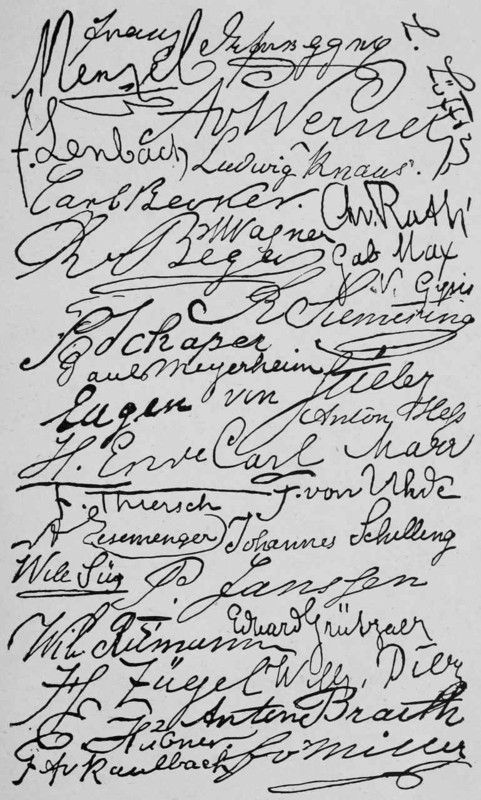 Franz Defregger
Menzel
L. Löfftz
Av Werner
F. Lenbach Ludwig Knaus.
Carl Becker. Chr. Roth
R. Begas M Wagner Gab Max
N. Gysis
R Siemering
F Schaper
Paul Meyerheim
Eugen von Stieler
Anton Hess
H. Ende Carl Marr
F. Thiersch F. von Uhde
A Eisenmenger Johannes Schilling
P. Janssen
Wilh. Rümann Eduard Grützner
H. Zügel Wilh. Diez
E. Hübner Anton Braith
F Av Kaulbach F v Miller